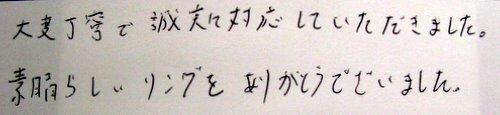 大変丁寧で誠実に対応していただきました。
素晴らしいリングをありがとうございました。